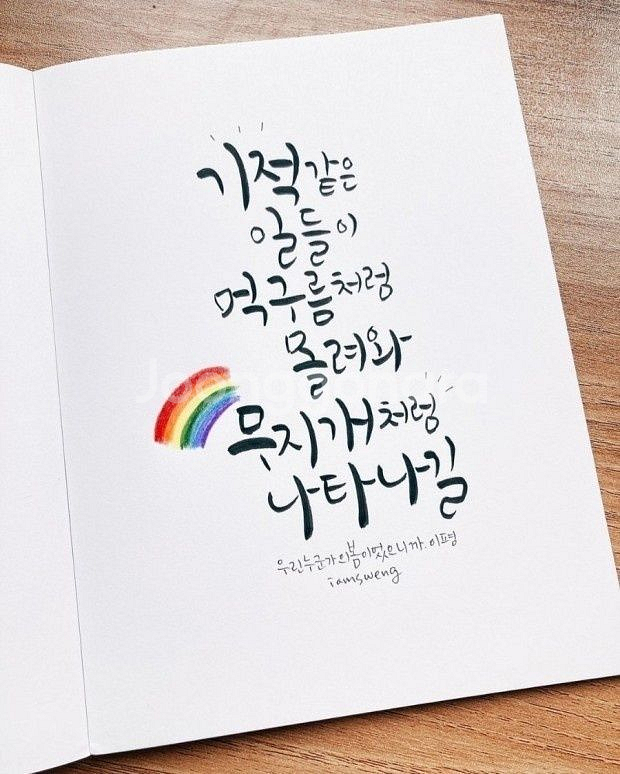 기적같은
일들이
먹구름처럼
몰려와
무지개처럼
나타나길
우린누군가의봄이었으니까.이평
iamsweng
Joongonara